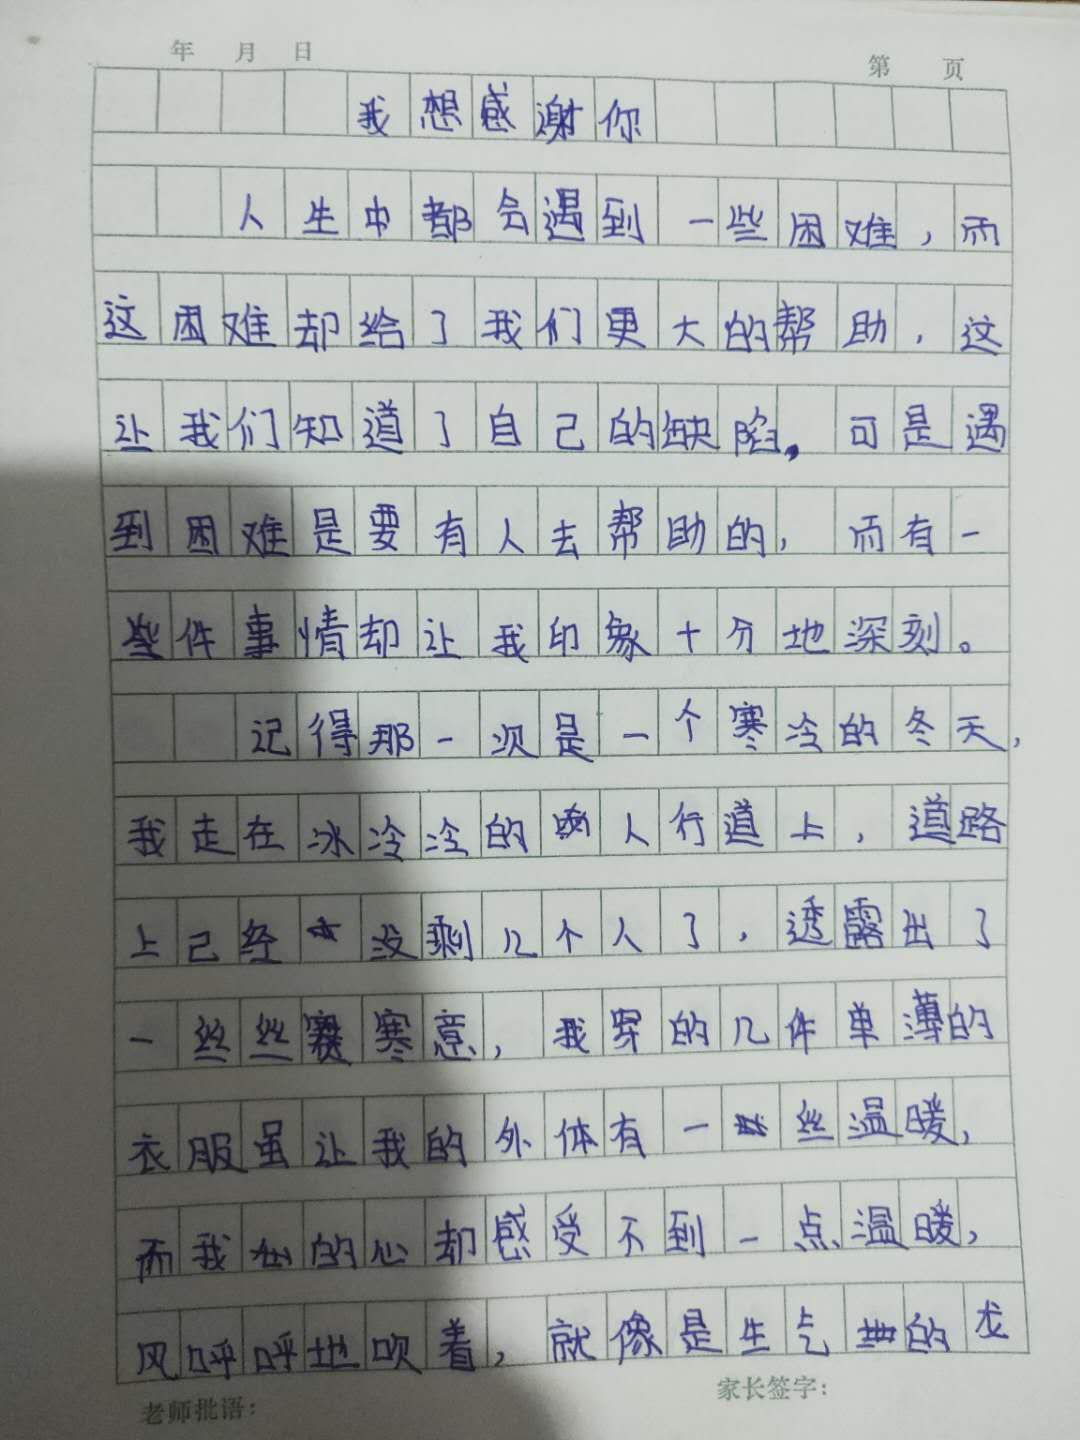 年 月 日
第 页
我想感谢你
人生中都会遇到一些困难，而
这困难却给了我们更大的帮助，这
让我们知道了自己的缺陷。可是遇
到困难是要有人去帮助的，而有一
些件事情却让我印象十分地深刻。
记得那一次是一个寒冷的冬天，
我走在冰冷冷的人行道上，道路
上己经没剩几个人了，透露出了
一丝丝寒意，我穿的几件单薄的
衣服虽让我的外体有一丝温暖，
而我的心却感受不到一点温暖，
风呼呼地吹着，就像是生气的龙
老师批语：
家长签字：